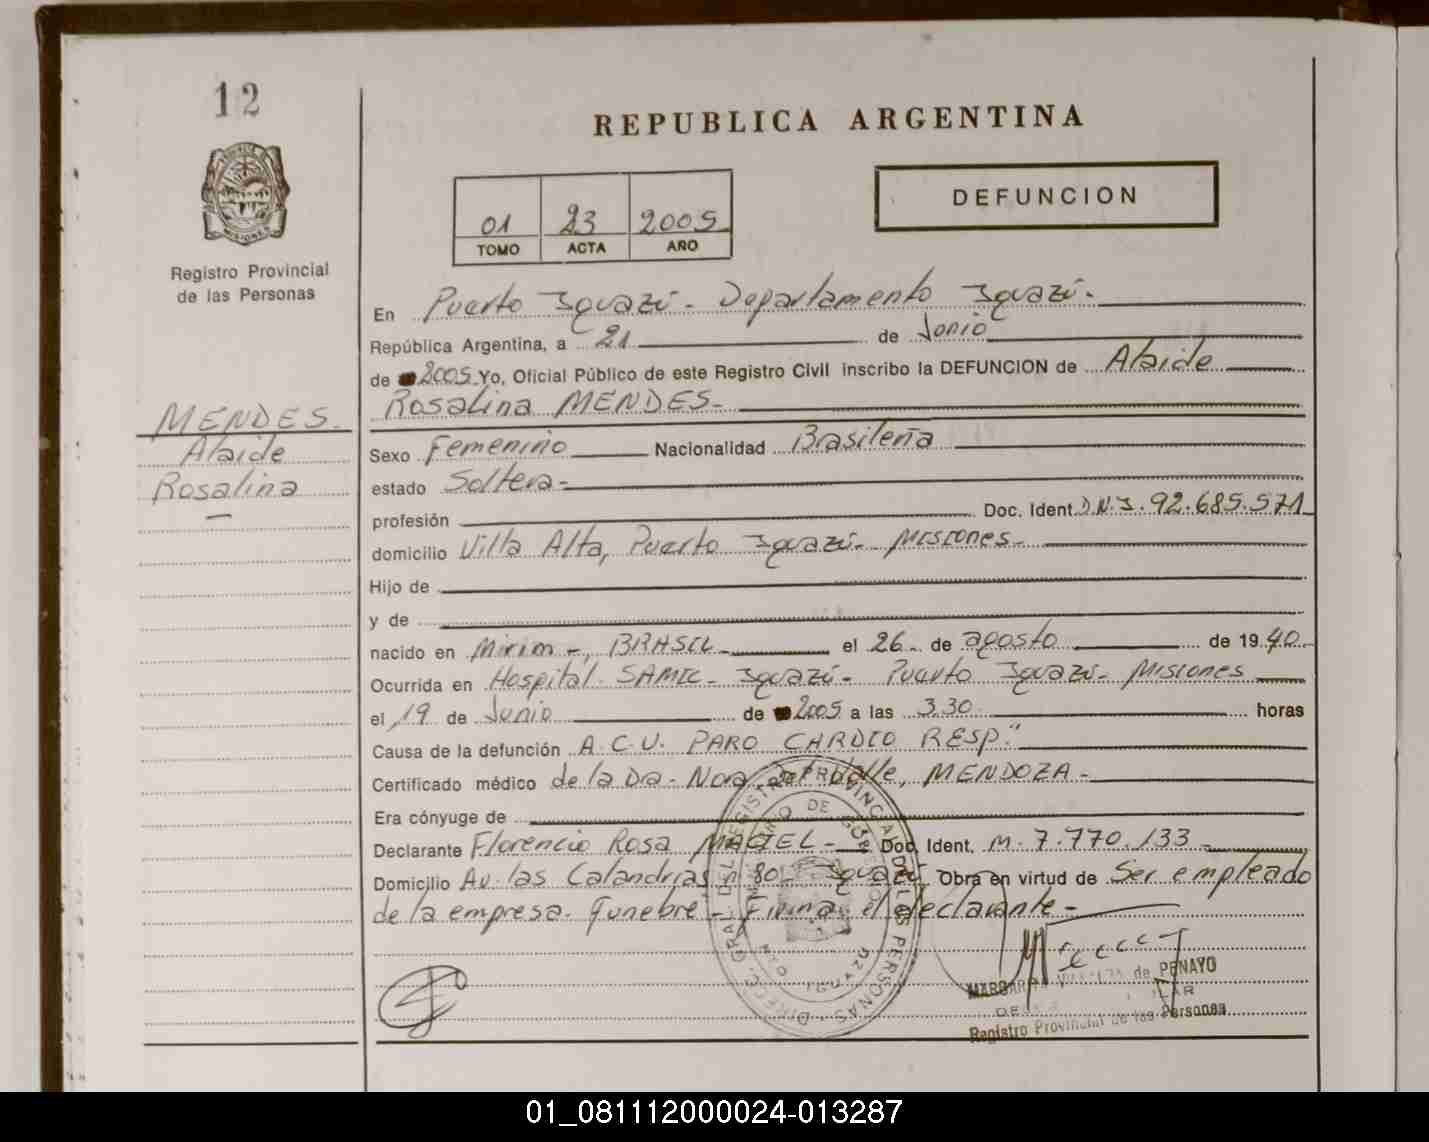 12
REPUBLICA ARGENTINA
DEFUNCION
01 23 2005
TOMO ACTA AÑO
Registro Provincial
de las Personas
En Puerto Iguazú - Departamento Iguazú -
República Argentina, a 21 de Junio
de 2005 Yo, Oficial Público de este Registro Civil inscribo la DEFUNCION de Alaide
Rosalina MENDES -
MENDES -
Alaide
Rosalina
Sexo Femenino Nacionalidad Brasileña
estado Soltera -
profesión Doc. Ident. D.N.I. 92.685.571
domicilio Villa Alta, Puerto Iguazú - Misiones -
Hijo de
y de
nacido en Mirim -, BRASIL - el 26 - de agosto de 1940
Ocurrida en Hospital SAMIC - Iguazú - Puerto Iguazú - Misiones
el 19 de Junio de 2005 a las 3.30 horas
Causa de la defunción A.C.V. PARO CARDIO RESP."
Certificado médico de la Dra - Nora del Valle, MENDOZA -
Era cónyuge de
Declarante Florencio Rosa MACIEL - Doc. Ident. M. 7.770.133 -
Domicilio Av. las Calandrias n 80 - Iguazú Obra en virtud de Ser empleado
de la empresa - Funebre - Firma el declarante -
DIREC. GRAL. DEL REGISTRO PROVINCIAL DE LAS PERSONAS
DE GOBIERNO
IGUAZU
de PENAYO
Registro Provincial de las Personas
01_081112000024-013287